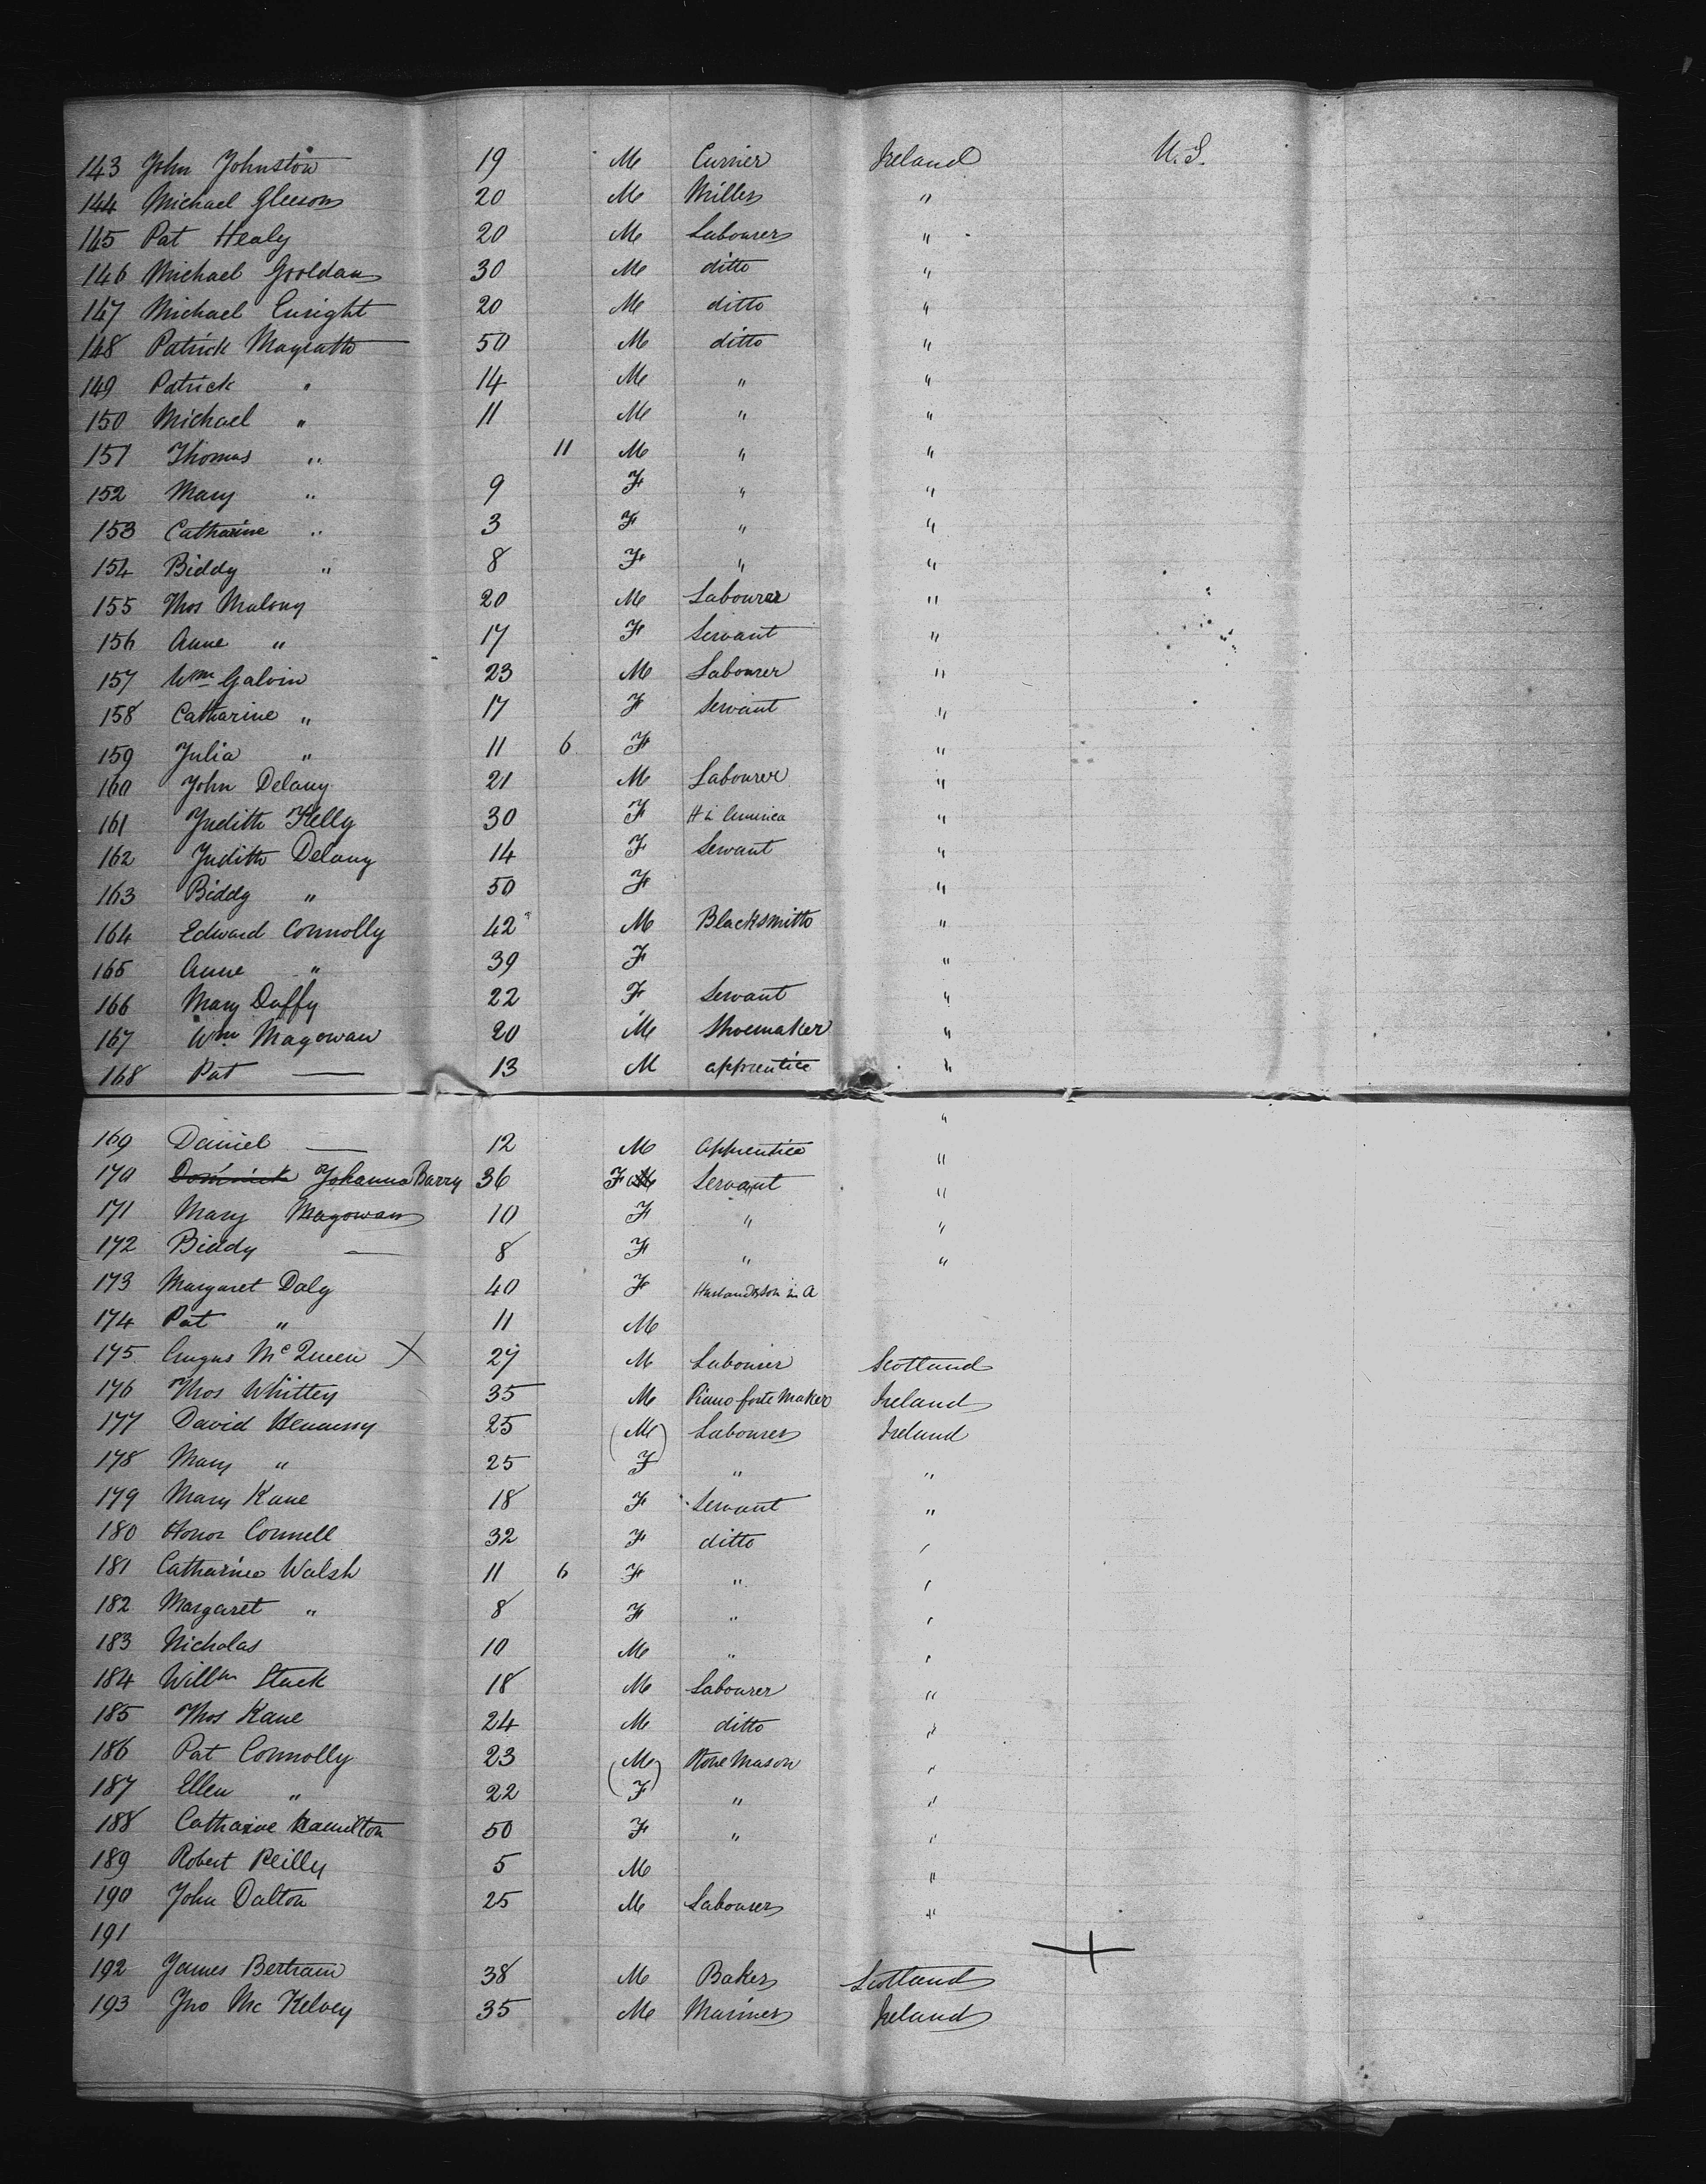 143 John Johnston 19 M Currier Ireland U.S.
144 Michael Gleeson 20 M Miller "
145 Pat Healy 20 M Labourer "
146 Michael Gooldan 30 M ditto "
147 Michael Enright 20 M ditto "
148 Patrick Magrath 50 M ditto "
149 Patrick " 14 M " "
150 Michael " 11 M " "
151 Thomas " 11 M " "
152 Mary " 9 F " "
153 Catharine " 3 F " "
154 Biddy " 8 F " "
155 Thos Malony 20 M Labourer "
156 Anne " 17 F Servant "
157 Wm Galvin 23 M Labourer "
158 Catharine " 17 F Servant "
159 Julia " 11 6 F "
160 John Delany 21 M Labourer "
161 Judith Kelly 30 F H in America "
162 Judith Delany 14 F Servant "
163 Biddy " 50 F "
164 Edward Connolly 42 M Blacksmith "
165 Anne " 39 F "
166 Mary Duffy 22 F Servant "
167 Wm Magowan 20 M Shoemaker "
168 Pat — 13 M apprentice "
169 Daniel — 12 M apprentice "
170 Dominick Johanna Barry 36 F M Servant "
171 Mary Magowan 10 F " "
172 Biddy — 8 F " "
173 Margaret Daly 40 F Husband & son in A "
174 Pat " 11 M
175 Angus McQueen X 27 M Labourer Scotland
176 Thos Whittey 35 M Piano forte Maker Ireland
177 David Hennessy 25 (M) Labourer Ireland
178 Mary " 25 F " "
179 Mary Kane 18 F Servant "
180 Honor Connell 32 F ditto "
181 Catharine Walsh 11 6 F " "
182 Margaret " 8 F " "
183 Nicholas 10 M " "
184 Willm Stack 18 M Labourer "
185 Thos Kane 24 M ditto "
186 Pat Connolly 23 (M) Stone Mason "
187 Ellen " 22 (F) " "
188 Catharine Hamilton 50 F " "
189 Robert Reilly 5 M "
190 John Dalton 25 M Labourer "
191
192 James Bertram 38 M Baker Scotland
193 Jno McKelvey 35 M Mariner Ireland